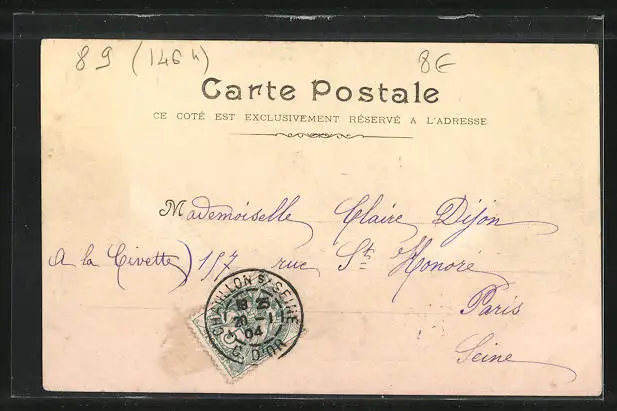 89 (146h)
8€
Carte Postale
CE COTÉ EST EXCLUSIVEMENT RÉSERVÉ A L'ADRESSE
Mademoiselle Claire Dijon
A la Civette) 157 rue St Honoré
Paris
Seine
CHATILLON S/ SEINE
04
C. D'OR